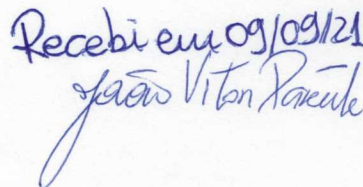 Recebi em 09/09/21
João Vitor Parente